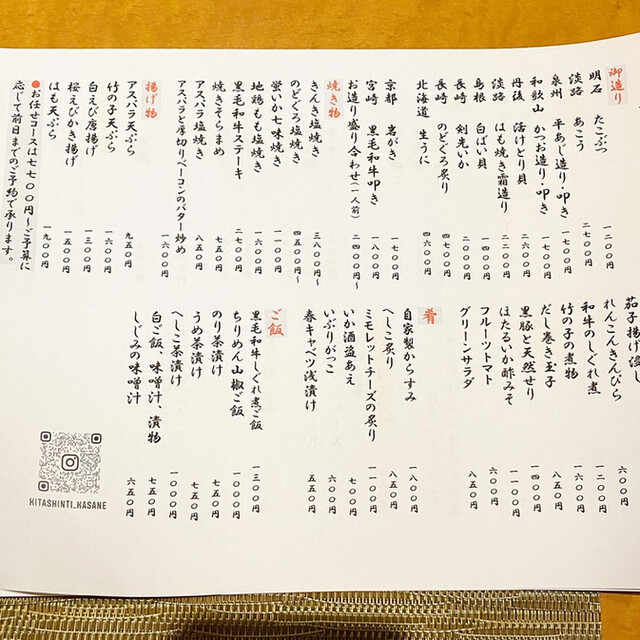 御造り
明石 たこぶつ 一二〇〇円
淡路 あこう 二七〇〇円
泉州 平あじ造り・叩き 一七〇〇円
和歌山 かつお造り・叩き 二六〇〇円
丹後 活けとり貝 二二〇〇円
淡路 はも焼き霜造り 二二〇〇円
島根 白ばい貝 一六〇〇円
長崎 剣先いか 二四〇〇円
長崎 のどぐろ炙り 四七〇〇円
北海道 生うに 四六〇〇円
京都 岩がき 一七〇〇円
宮崎 黒毛和牛叩き 一八〇〇円
お造り盛り合わせ(一人前) 二四〇〇円〜
焼き物
きんき塩焼き 三八〇〇円〜
のどぐろ塩焼き 四五〇〇円〜
蛍いか七味焼き 一三〇〇円
地鶏もも塩焼き 一六〇〇円
黒毛和牛ステーキ 二七〇〇円
焼きそらまめ 八五〇円
アスパラ塩焼き 八五〇円
アスパラと厚切りベーコンのバター炒め 一六〇〇円
揚げ物
アスパラ天ぷら 九五〇円
竹の子天ぷら 一六〇〇円
白えび唐揚げ 一三〇〇円
桜えびかき揚げ 一五〇〇円
はも天ぷら 一九〇〇円
●お任せコースは七七〇〇円〜ご予算に
応じて前日までのご予約で承ります。
茄子揚げ浸し 六〇〇円
れんこんきんぴら 六〇〇円
和牛のしぐれ煮
竹の子の煮物
だし巻き玉子 八五〇円
黒豚と天然せり 一四〇〇円
ほたるいか酢みそ 一一〇〇円
フルーツトマト 六〇〇円
グリーンサラダ 八五〇円
肴
自家製からすみ 一八〇〇円
へしこ炙り 八五〇円
ミモレットチーズの炙り 一一〇〇円
いか酒盗あえ 七〇〇円
いぶりがっこ 六〇〇円
春キャベツ浅漬け 五五〇円
ご飯
黒毛和牛しぐれ煮ご飯 一三〇〇円
ちりめん山椒ご飯 一〇〇〇円
のり茶漬け 七五〇円
うめ茶漬け 七五〇円
へしこ茶漬け 一〇〇〇円
白ご飯、味噌汁、漬物 七五〇円
しじみの味噌汁 六五〇円
KITASHINTI_KASANE